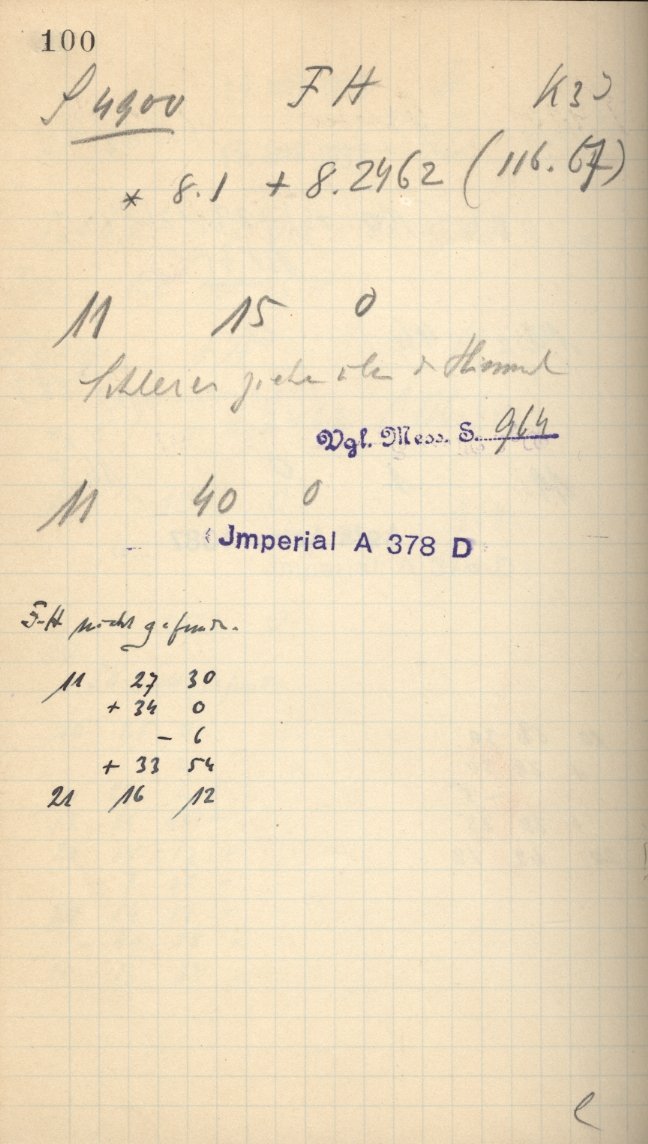 100
S 4900 FH K33
* 8.1 + 8.2462 (116.67)
11 15 0
Schleier ziehen über d Himmel
Vgl. Mess. S. 964
11 40 0
Jmperial A 378 D
F-H nicht gefund.
11 27 30
+ 34 0
- 6
+ 33 54
21 16 12